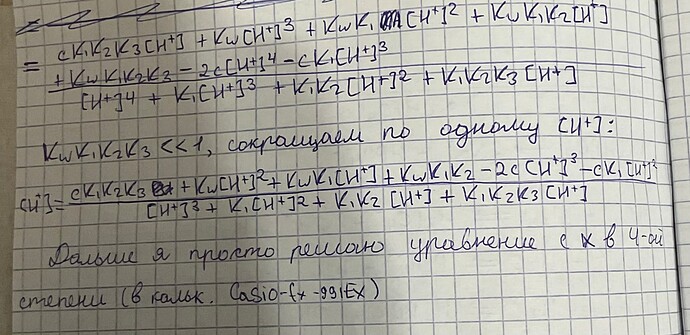 = cK₁K₂K₃[H⁺] + Kw[H⁺]³ + KwK₁[H⁺]² + KwK₁K₂[H⁺]
+ KwK₁K₂K₃ - 2c[H⁺]⁴ - cK₁[H⁺]³
[H⁺]⁴ + K₁[H⁺]³ + K₁K₂[H⁺]² + K₁K₂K₃[H⁺]
KwK₁K₂K₃ << 1, сокращаем по одному [H⁺]:
[H⁺] = cK₁K₂K₃ + Kw[H⁺]² + KwK₁[H⁺] + KwK₁K₂ - 2c[H⁺]³ - cK₁[H⁺]²
[H⁺]³ + K₁[H⁺]² + K₁K₂[H⁺] + K₁K₂K₃[H⁺]
Дальше я просто решаю уравнение с x в 4-ой
степени (в кальк. Casio-fx-991Ex)